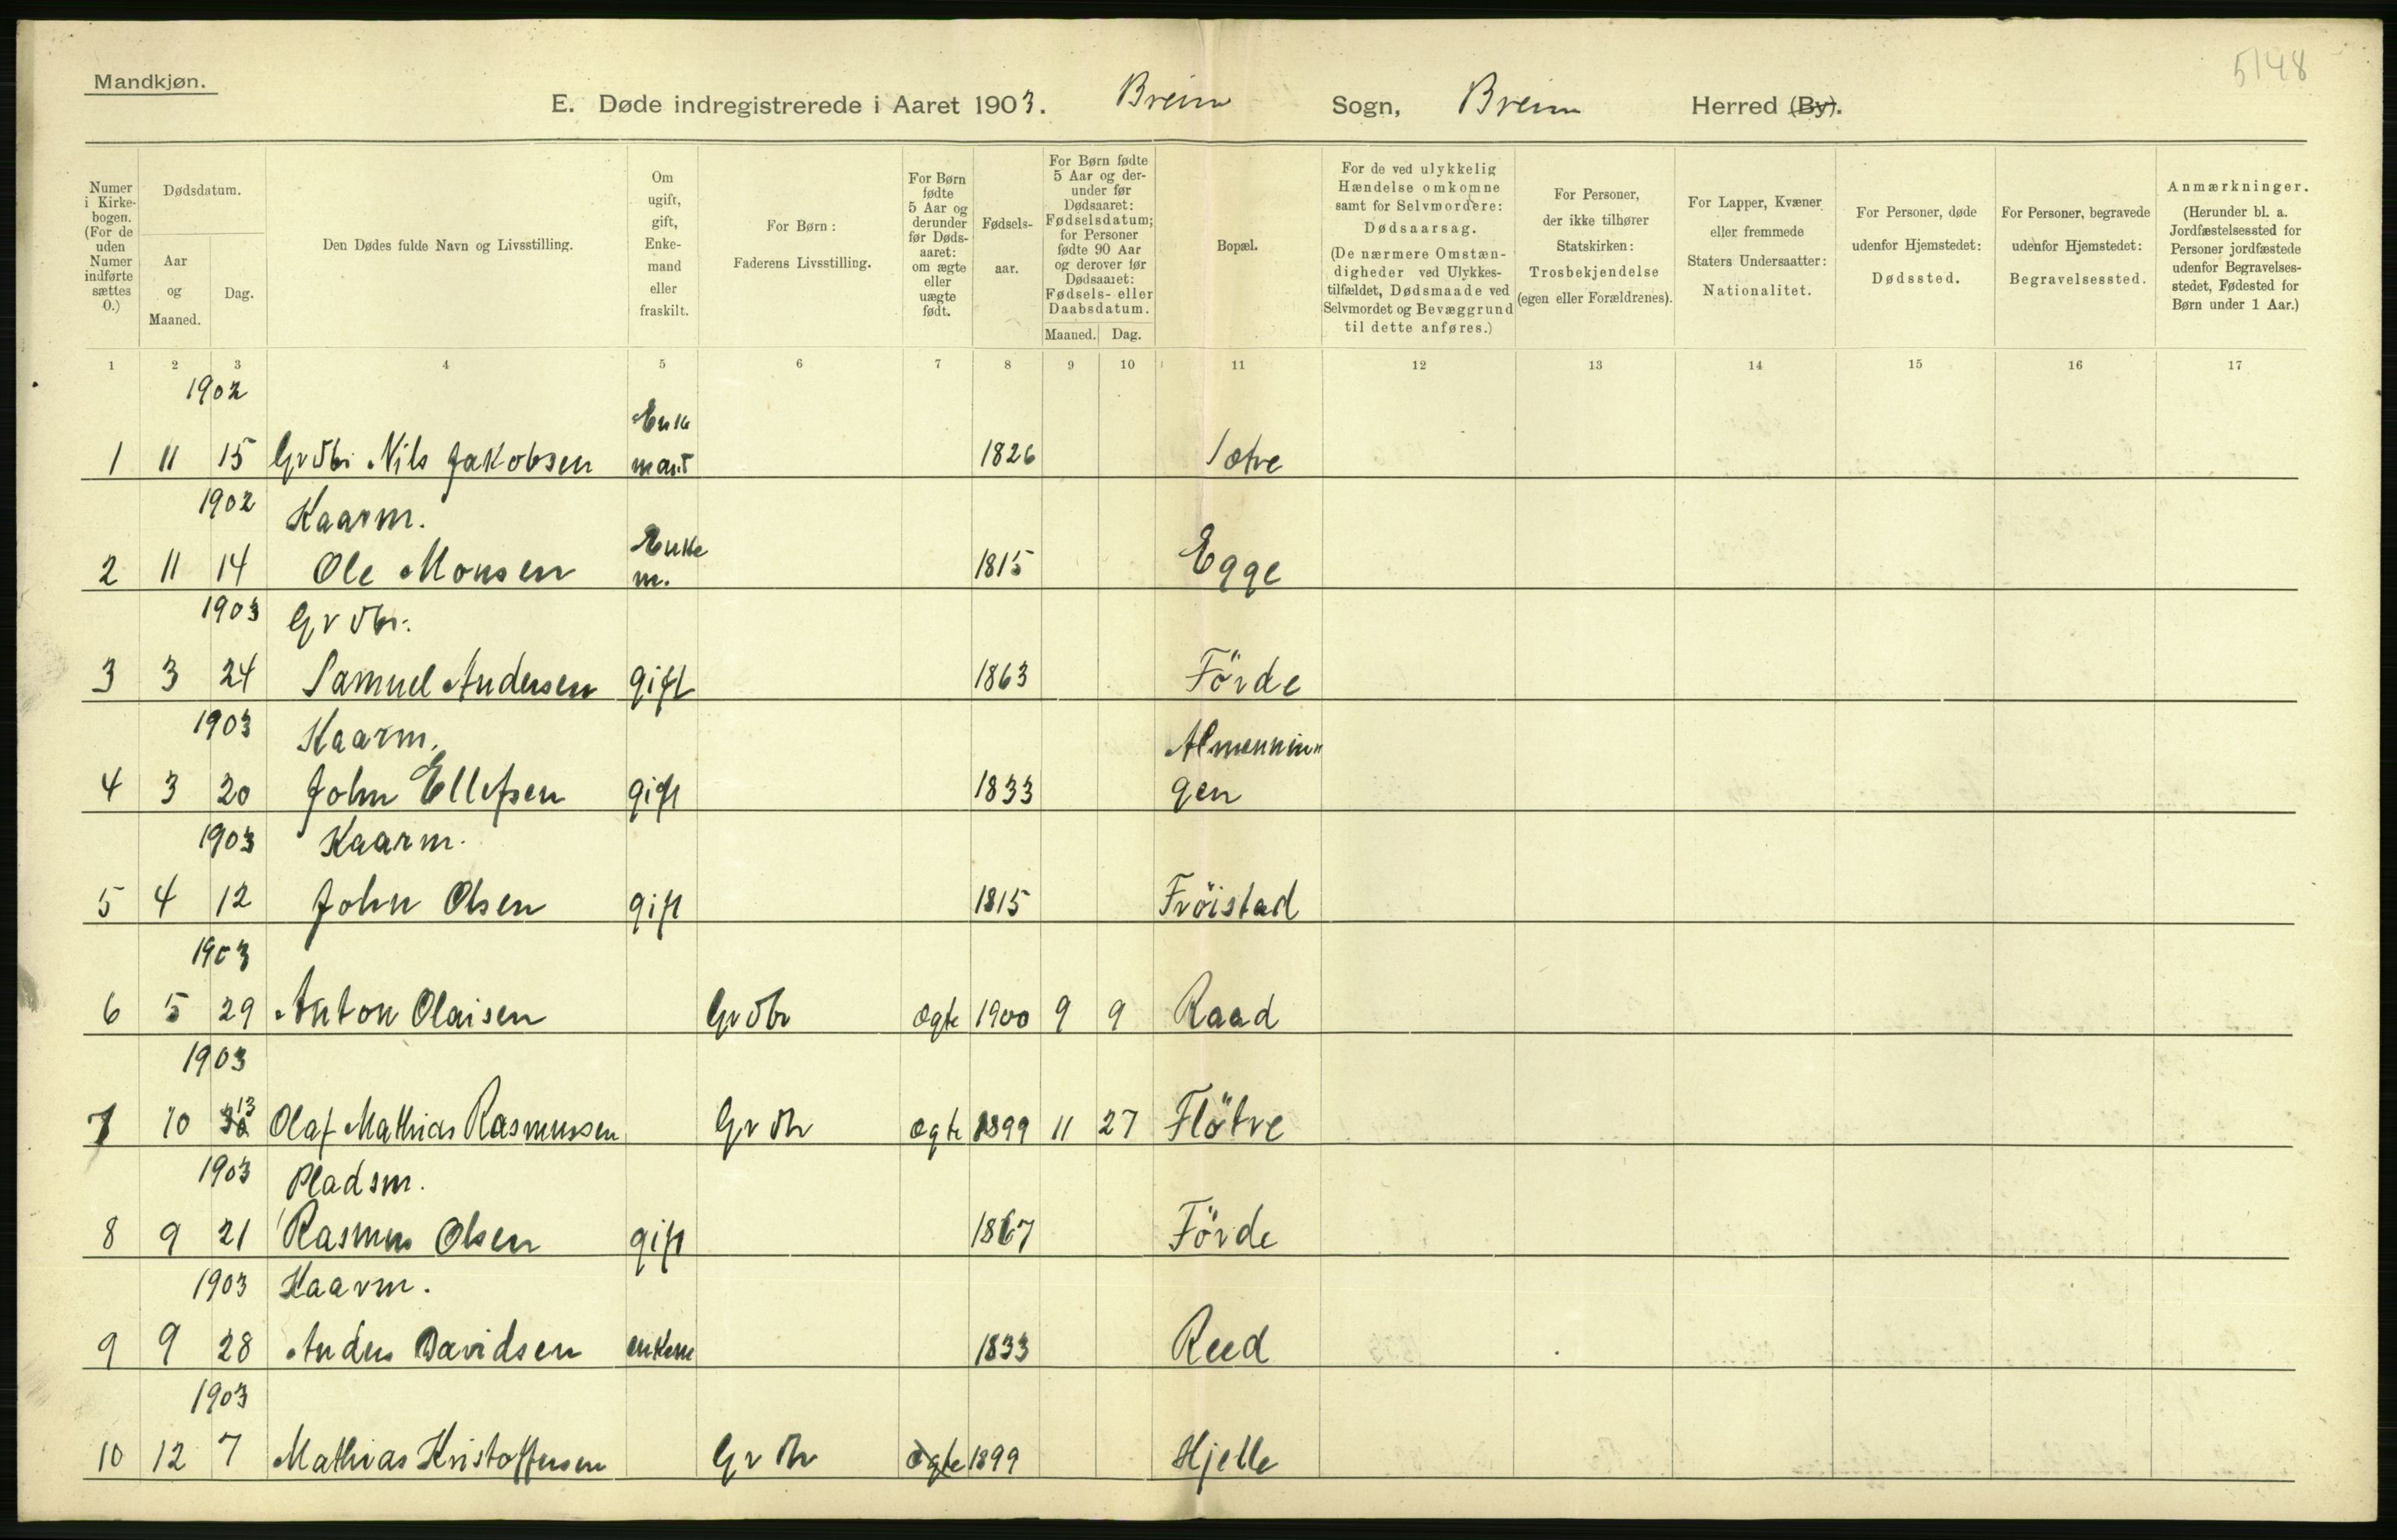 5148
Mandkjøn.
E. Døde indregistrerede i Aaret 1903. Breim Sogn, Breim Herred (By).
Numer i Kirkebogen. (For de uden Numer indførte sættes 0.)
Dødsdatum.
Aar og Maaned.
Dag.
Den Dødes fulde Navn og Livsstilling.
Om ugift, gift, Enkemand eller fraskilt.
For Børn: Faderens Livsstilling.
For Børn fødte 5 Aar og derunder før Dødsaaret: om ægte eller uægte født.
Fødselsaar.
For Børn fødte 5 Aar og derunder før Dødsaaret: Fødselsdatum; for Personer fødte 90 Aar og derover før Dødsaaret: Fødsels- eller Daabsdatum.
Maaned. Dag.
Bopæl.
For de ved ulykkelig Hændelse omkomne samt for Selvmordere: Dødsaarsag. (De nærmere Omstændigheder ved Ulykkestilfældet, Dødsmaade ved Selvmordet og Bevæggrund til dette anføres.)
For Personer, der ikke tilhører Statskirken: Trosbekjendelse (egen eller Forældrenes).
For Lapper, Kvæner eller fremmede Staters Undersaatter: Nationalitet.
For Personer, døde udenfor Hjemstedet: Dødssted.
For Personer, begravede udenfor Hjemstedet: Begravelsessted.
Anmærkninger. (Herunder bl. a. Jordfæstelsessted for Personer jordfæstede udenfor Begravelsesstedet, Fødested for Børn under 1 Aar.)
1 2 3 4 5 6 7 8 9 10 11 12 13 14 15 16 17
1902 Enke
1 11 15 Grdbr Nils Jakobsen mand 1826 Sætre
1902 Kaarm. Enke
2 11 14 Ole Monsen m. 1815 Egge
1903 Grdbr.
3 3 24 Samuel Andersen gift 1863 Förde
1903 Kaarm. Almennin"
4 3 20 John Ellefsen gift 1833 gen
1903 Kaarm.
5 4 12 John Olsen gift 1815 Fröistad
1903
6 5 29 Anton Olaisen Grdbr ægte 1900 9 9 Raad
1903
7 10 13 Olaf Mathias Rasmussen Grdbr ægte 1899 11 27 Flötre
1903 Pladsm.
8 9 21 Rasmus Olsen gift 1867 Förde
1903 Kaarm.
9 9 28 Anders Davidsen enkem 1833 Reed
1903
10 12 7 Mathias Kristoffersen Grdbr ægte 1899 Hjelle